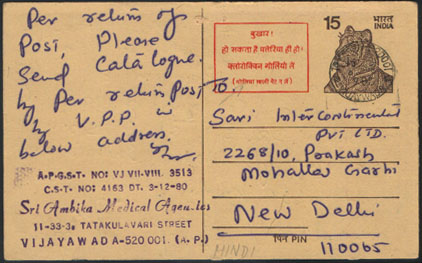 Per return of
Post, Please
Send Catalogue.
by Per return Post
by V.P.P. in
below address.
A.P.G.S.T. NO: VJ VII-VIII. 3513
C.S.T- NO: 4163 DT. 3-12-80
Sri Ambika Medical Agencies
11-33-3, TATAKULAVARI STREET
VIJAYAWADA-520 001. (A. P.)
बुखार !
हो सकता है मलेरिया ही हो।
क्लोरोक्विन गोलियां लें
(गोलियां खाली पेट न लें)
15 भारत
INDIA
To.
Sari Intercontinental
Pvt LTD.
2268/10, Prakash
Mohalla Garhi
New Delhi
पिन PIN
110065
HINDI